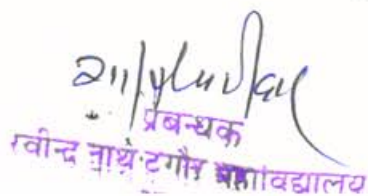 प्रबन्धक
रवीन्द्र नाथ टैगौर महाविद्यालय